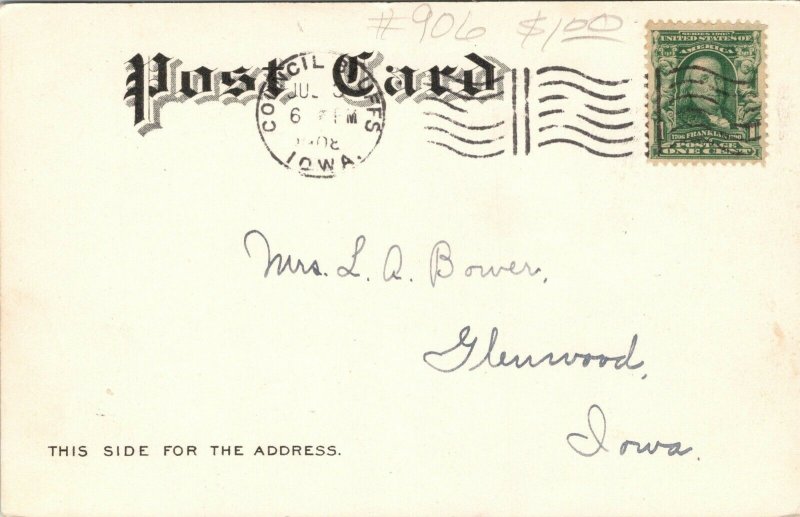 #906 $1.00
Post Card
COUNCIL BLUFFS
JUL
6 PM
1908
IOWA.
SERIES 1902
UNITED STATES OF
AMERICA
1706 FRANKLIN 1790
POSTAGE
ONE CENT
Mrs. L. A. Bower,
Glenwood,
Iowa.
THIS SIDE FOR THE ADDRESS.